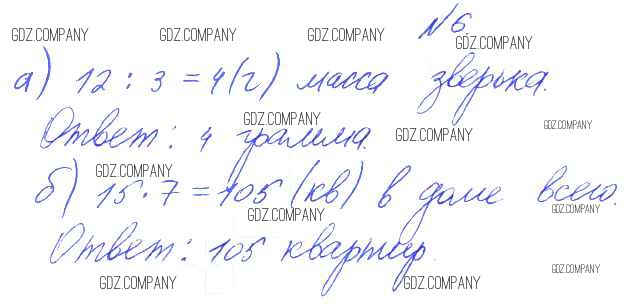 №6.
GDZ.COMPANY GDZ.COMPANY GDZ.COMPANY GDZ.COMPANY
а) 12 : 3 = 4 (г) масса зверька.
GDZ.COMPANY GDZ.COMPANY GDZ.COMPANY
Ответ: 4 грамма.
GDZ.COMPANY
б) 15 · 7 = 105 (кв) в доме всего.
GDZ.COMPANY GDZ.COMPANY
Ответ: 105 квартир.
GDZ.COMPANY GDZ.COMPANY GDZ.COMPANY